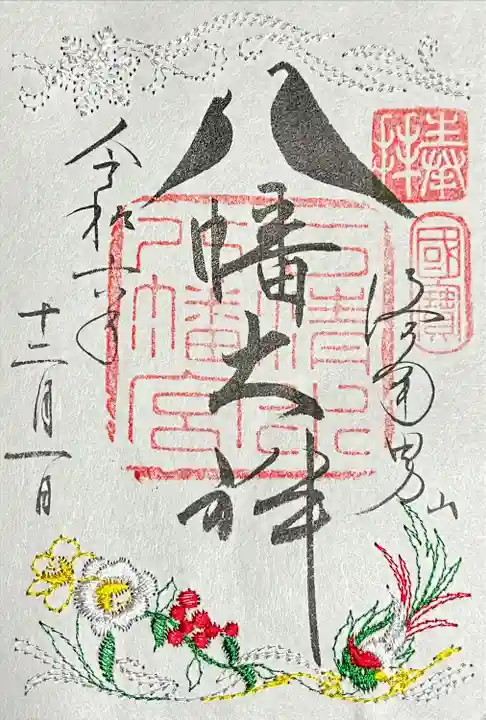 奉拝
國寶
八幡大神
男山
石清水
八幡宮
令和六年
十二月一日